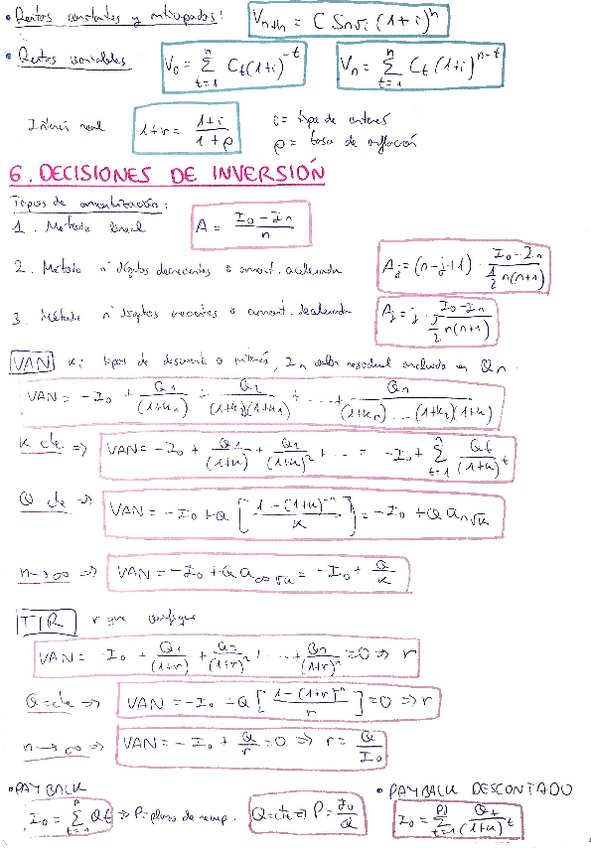 • Rentas constantes y anticipadas: Vn+h = C Sn┐i (1+i)^h
• Rentas variables V₀ = Σ(t=1→n) Ct (1+i)^-t Vn = Σ(t=1→n) Ct (1+i)^n-t
Interés real 1+r = (1+i)/(1+ρ) i = tipo de interés
ρ = tasa de inflación
6. DECISIONES DE INVERSIÓN
Tipos de amortización:
1. Método lineal A = (I₀ - In)/n
2. Método nº dígitos decrecientes o amort. acelerada Aj = (n-j+1) · (I₀ - In)/(1/2 n(n+1))
3. Método nº dígitos crecientes o amort. decelerada Aj = j · (I₀ - In)/(1/2 n(n+1))
VAN K: tipos de descuento o interés, In valor residual incluido en Qn.
VAN = -I₀ + Q₁/(1+k₁) + Q₂/(1+k₂)(1+k₁) + ... + Qn/(1+kn)...(1+k₂)(1+k)
K cte => VAN = -I₀ + Q₁/(1+k) + Q₂/(1+k)² + ... = -I₀ + Σ(t=1→n) Qt/(1+k)^t
Q cte => VAN = -I₀ + Q [(1-(1+k)^-n)/k] = -I₀ + Q an┐k
n→∞ => VAN = -I₀ + Q a∞┐k = -I₀ + Q/k
TIR r que verifique
VAN = -I₀ + Q₁/(1+r) + Q₂/(1+r)² + ... + Qn/(1+r)^n = 0 => r
Q = cte => VAN = -I₀ + Q [(1-(1+r)^-n)/r] = 0 => r
n→∞ => VAN = -I₀ + Q/r = 0 => r = Q/I₀
• PAYBACK • PAYBACK DESCONTADO
I₀ = Σ(t=1→P) Qt => P = plazo de recup. Q = cte => P = I₀/Q I₀ = Σ(t=1→Pd) Qt/(1+k)^t